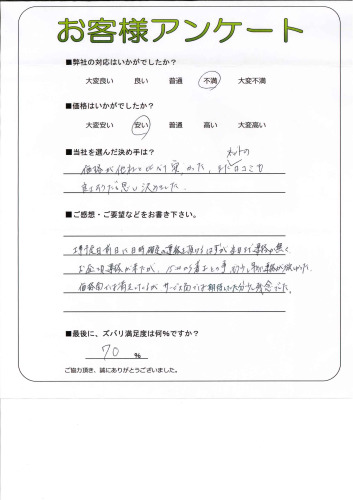 お客様アンケート
■弊社の対応はいかがでしたか？
大変良い 良い 普通 不満 大変不満
■価格はいかがでしたか？
大変安い 安い 普通 高い 大変高い
■当社を選んだ決め手は？
ネットの
価格が他社と比べて安かった、また口コミも
良さそうだと思い決めました。
■ご感想・ご要望などをお書き下さい。
工事予定日前日に日時確定の連絡を頂けるはずが、本日まで連絡が無く
お昼頃連絡が来たが、15:00から着工との事、もう少し早く連絡が欲しかった。
価格面では満足しているが、サービス面では期待していた分少し残念でした。
■最後に、ズバリ満足度は何%ですか？
70 %
ご協力頂き、誠にありがとうございました。